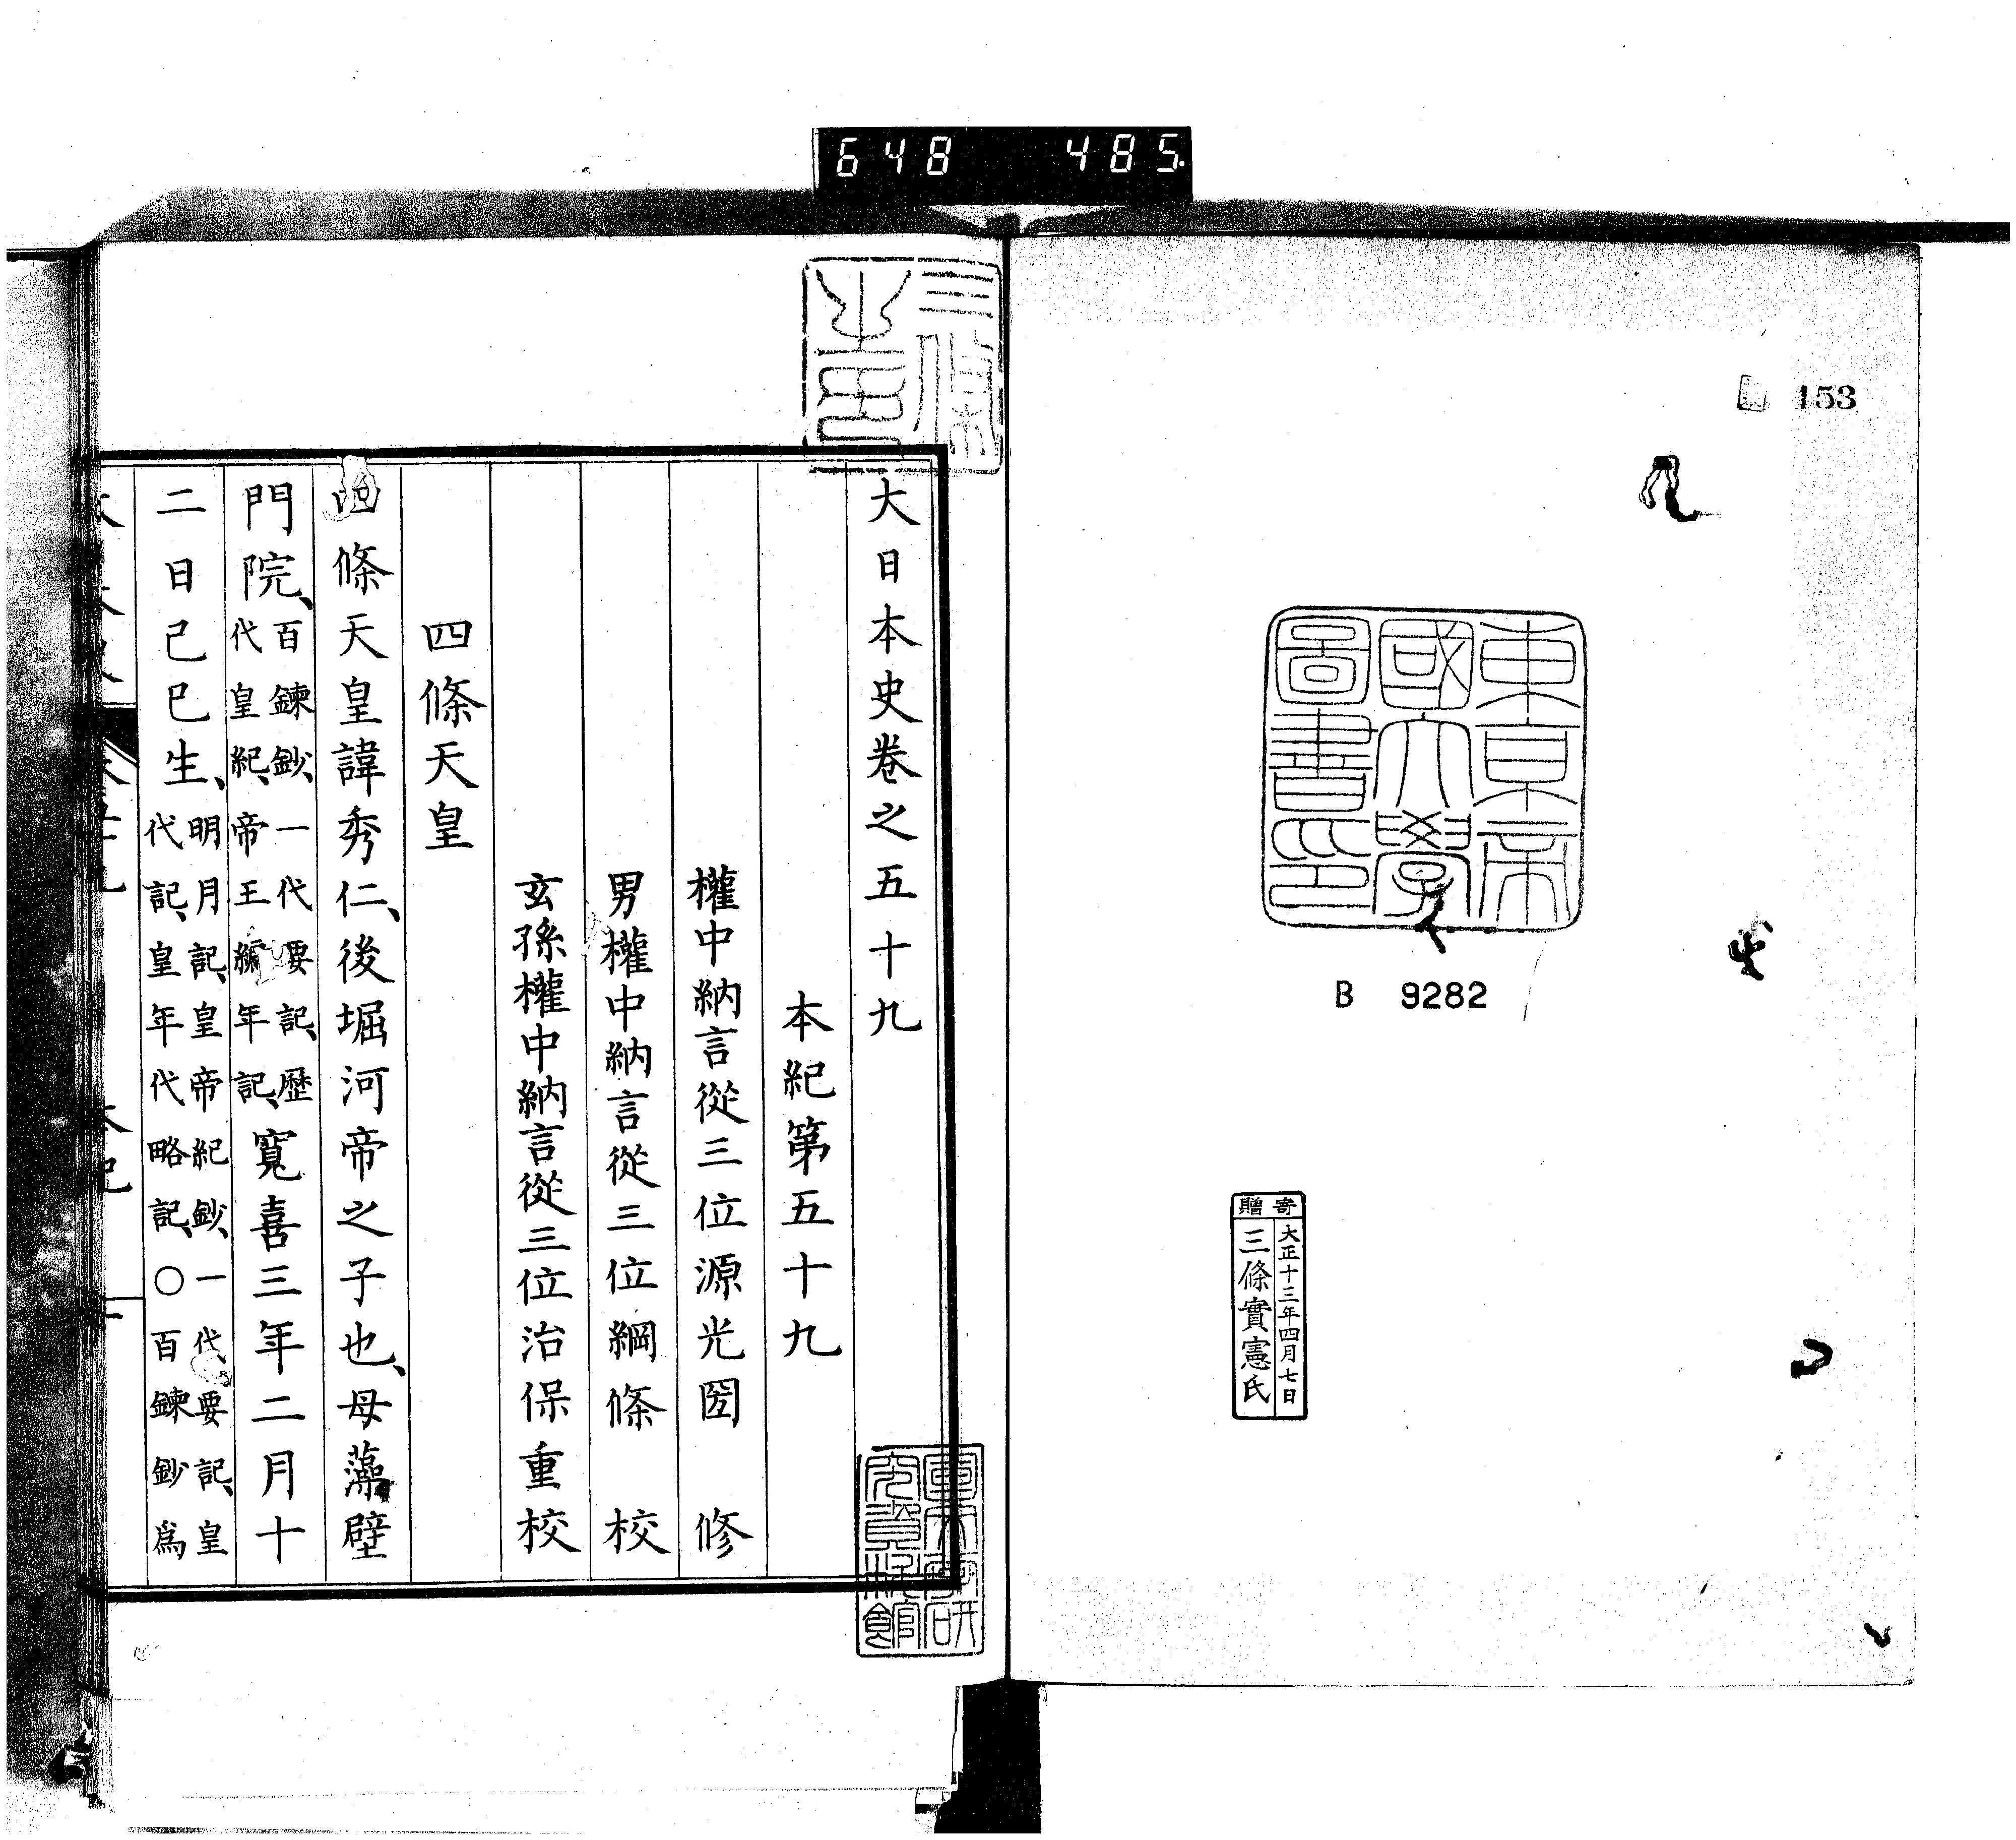 648 485
153
東京帝
國大學
圖書印
B 9282
寄贈
大正十三年四月七日
三條實憲氏
三條
大日本史卷之五十九
本紀第五十九
權中納言從三位源光圀 修
男權中納言從三位綱條 校
玄孫權中納言從三位治保重校
四條天皇
四條天皇諱秀仁、後堀河帝之子也、母藻壁
門院、百鍊鈔、一代要記、歷代皇紀、帝王編年記、寬喜三年二月十
二日己巳生、明月記、皇帝紀鈔、一代要記、皇代記、皇年代略記、〇百鍊鈔爲